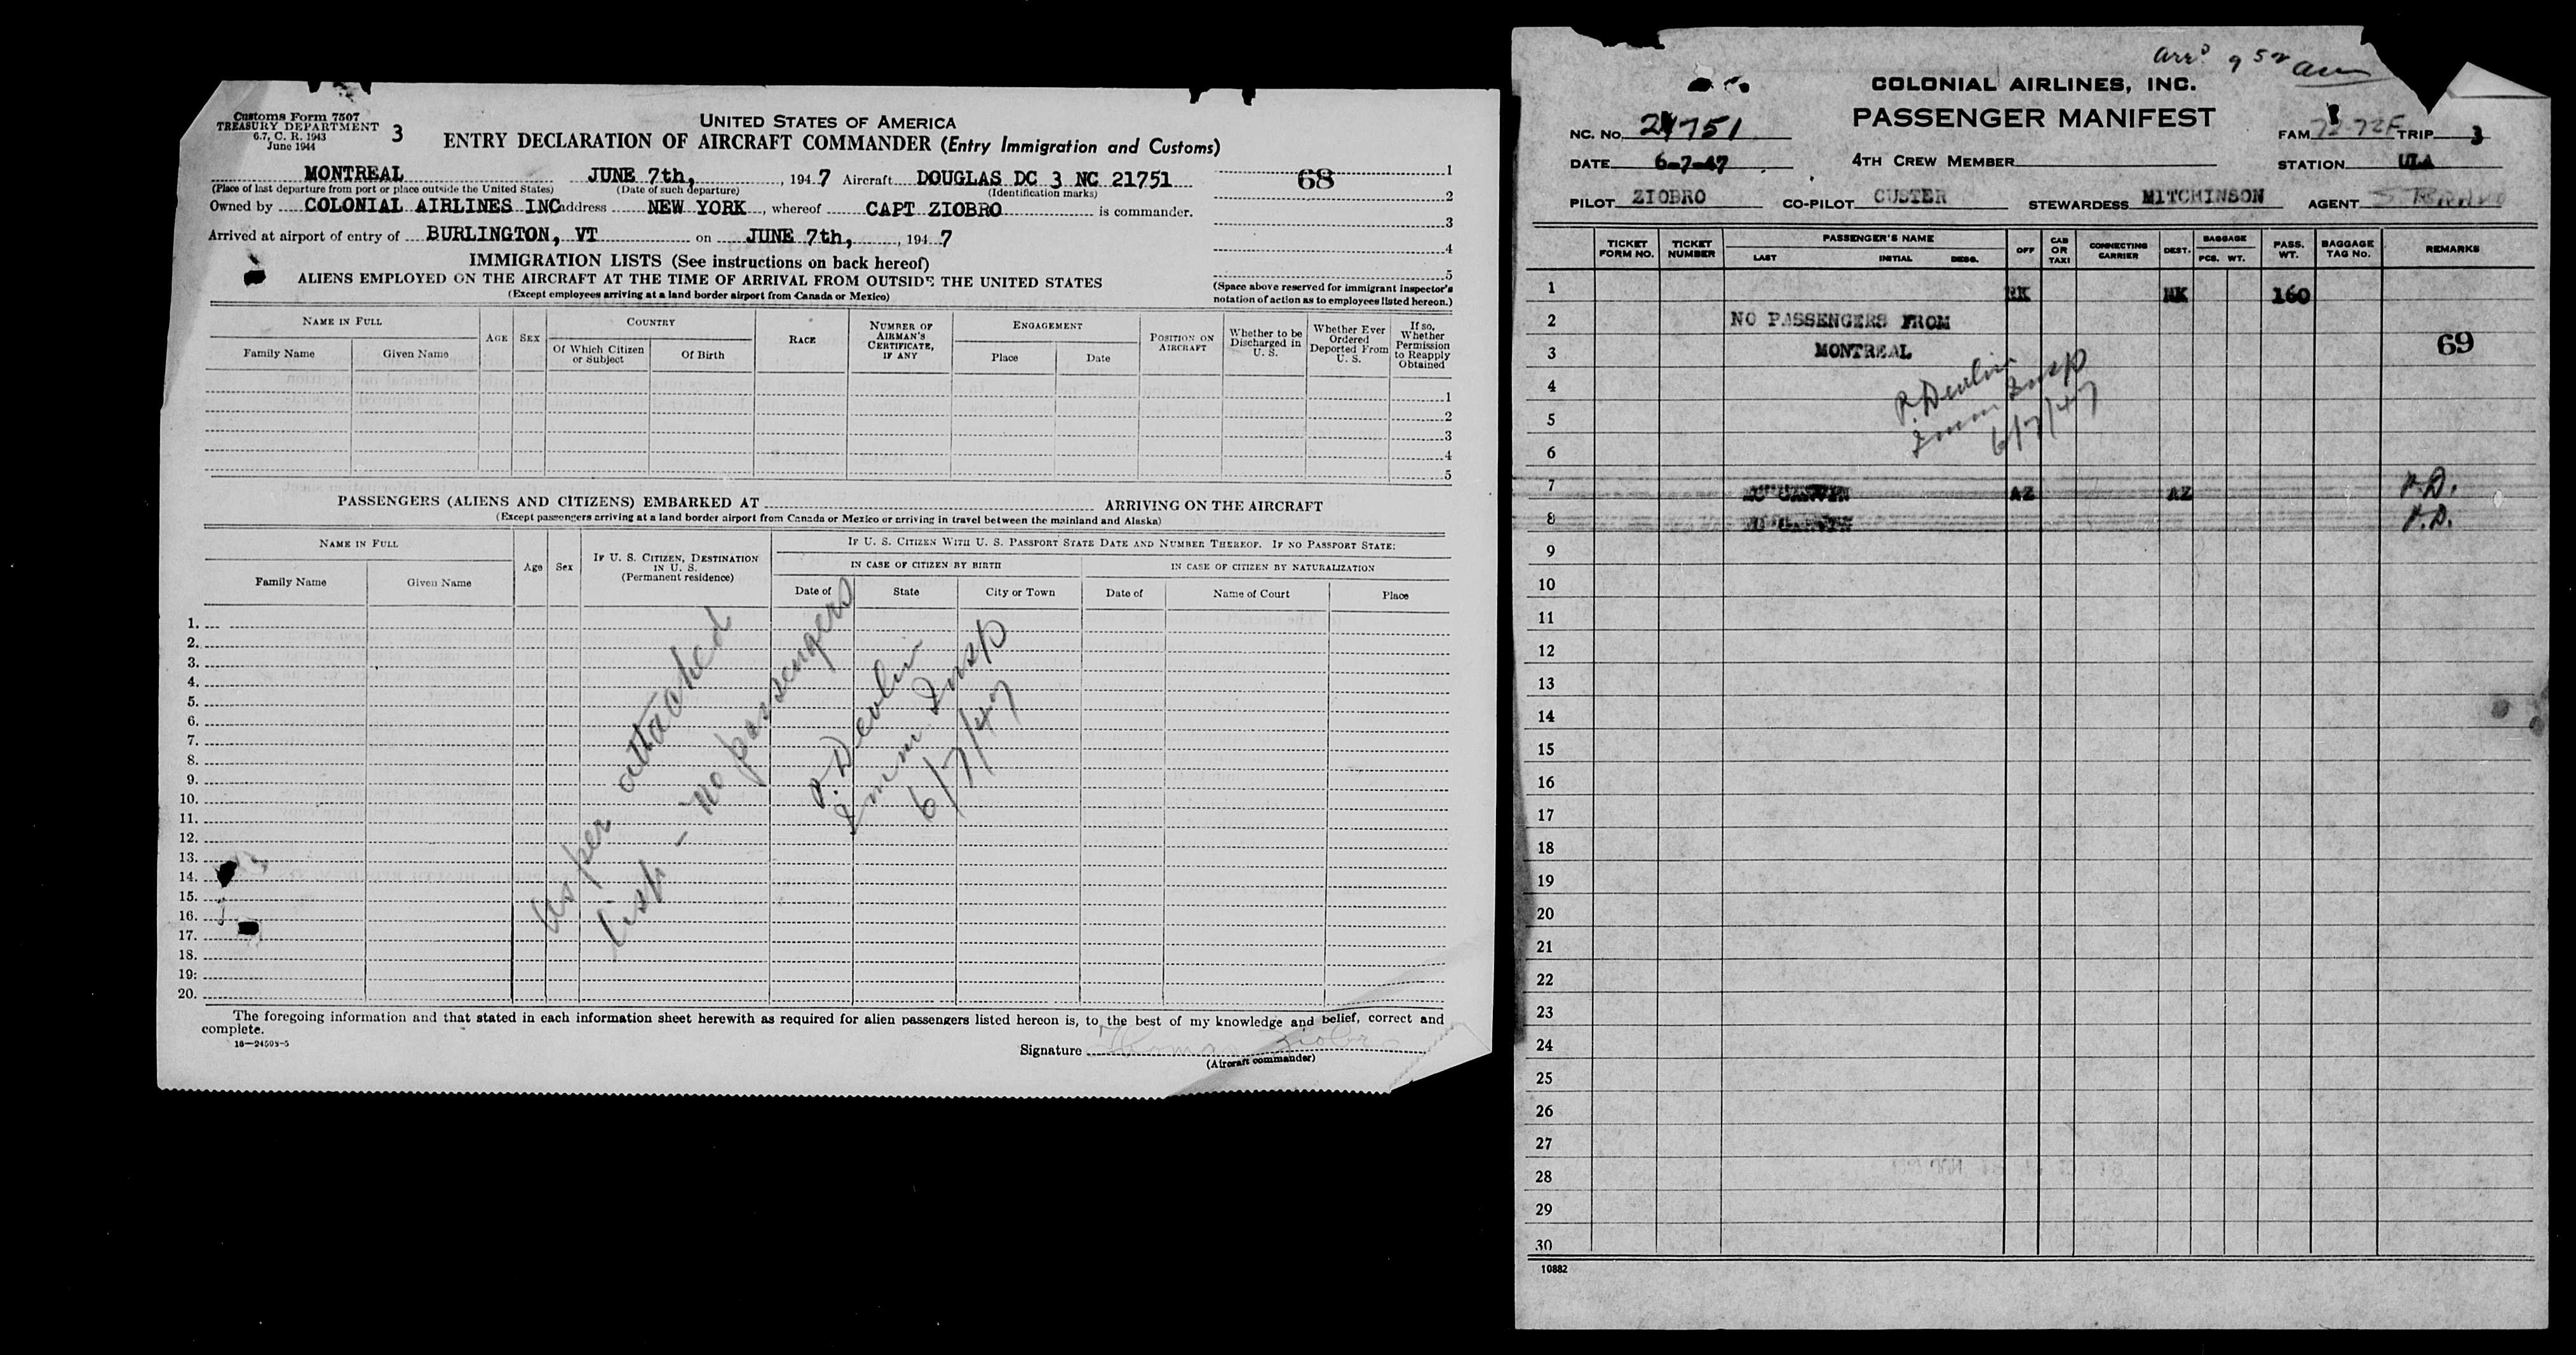 Customs Form 7507
TREASURY DEPARTMENT
6.7, C. R. 1943
June 1944
3
UNITED STATES OF AMERICA
ENTRY DECLARATION OF AIRCRAFT COMMANDER (Entry Immigration and Customs)
MONTREAL JUNE 7th, , 1947 Aircraft DOUGLAS DC 3 NC 21751
(Place of last departure from port or place outside the United States) (Date of such departure) (Identification marks)
Owned by COLONIAL AIRLINES INC address NEW YORK , whereof CAPT ZIOBRO is commander.
Arrived at airport of entry of BURLINGTON, VT on JUNE 7th, , 1947
68
1
2
3
4
5
(Space above reserved for immigrant inspector's notation of action as to employees listed hereon.)
IMMIGRATION LISTS (See instructions on back hereof)
ALIENS EMPLOYED ON THE AIRCRAFT AT THE TIME OF ARRIVAL FROM OUTSIDE THE UNITED STATES
(Except employees arriving at a land border airport from Canada or Mexico)
NAME IN FULL
Family Name Given Name
AGE SEX
COUNTRY
Of Which Citizen or Subject Of Birth
RACE
NUMBER OF AIRMAN'S CERTIFICATE, IF ANY
ENGAGEMENT
Place Date
POSITION ON AIRCRAFT
Whether to be Discharged in U. S.
Whether Ever Ordered Deported From U. S.
If so, Whether Permission to Reapply Obtained
1
2
3
4
5
PASSENGERS (ALIENS AND CITIZENS) EMBARKED AT ARRIVING ON THE AIRCRAFT
(Except passengers arriving at a land border airport from Canada or Mexico or arriving in travel between the mainland and Alaska)
NAME IN FULL
Family Name Given Name
Age Sex
IF U. S. CITIZEN, DESTINATION IN U. S. (Permanent residence)
IF U. S. CITIZEN WITH U. S. PASSPORT STATE DATE AND NUMBER THEREOF. IF NO PASSPORT STATE:
IN CASE OF CITIZEN BY BIRTH IN CASE OF CITIZEN BY NATURALIZATION
Date of State City or Town Date of Name of Court Place
1.
2.
3.
4.
5.
6.
7.
8.
9.
10.
11.
12.
13.
14.
15.
16.
17.
18.
19.
20.
as per attached
list - no passengers
P. Devlin
Imm Insp
6/7/47
The foregoing information and that stated in each information sheet herewith as required for alien passengers listed hereon is, to the best of my knowledge and belief, correct and
complete.
16—24598-5
Signature Thomas Ziobro
(Aircraft commander)
arr'd 9 52 am
COLONIAL AIRLINES, INC.
PASSENGER MANIFEST
NC. NO. 21751
FAM 72F TRIP 3
DATE 6-7-47 4TH CREW MEMBER STATION ULA
PILOT ZIOBRO CO-PILOT CUSTER STEWARDESS MITCHINSON AGENT
TICKET FORM NO. TICKET NUMBER PASSENGER'S NAME LAST INITIAL DESG. OFF CAB OR TAXI CONNECTING CARRIER DEST. BAGGAGE PCS. WT. PASS. WT. BAGGAGE TAG No. REMARKS
1 160
2 NO PASSENGERS FROM
3 MONTREAL 69
4
5
6
P. Devlin
Imm Insp
6/7/47
7 AZ AZ P.D.
8 P.D.
9
10
11
12
13
14
15
16
17
18
19
20
21
22
23
24
25
26
27
28
29
30
10882